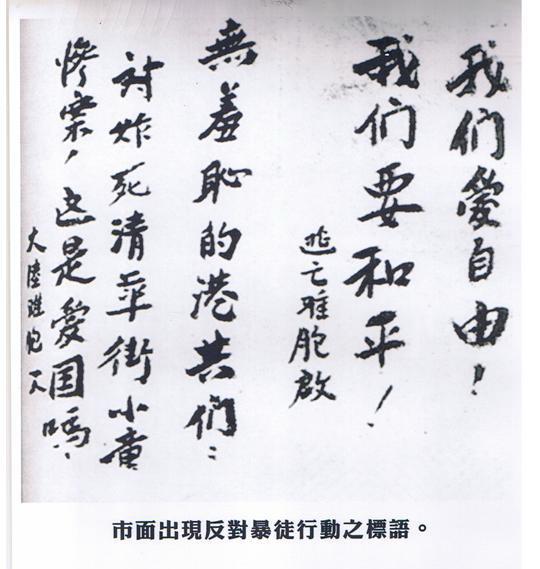 我们愛自由!
我们要和平!
逃亡难胞啟
無羞恥的港共们:
対炸死清華街小童
慘案,这是愛国嗎!
大陸难胞
市面出現反對暴徒行動之標語。